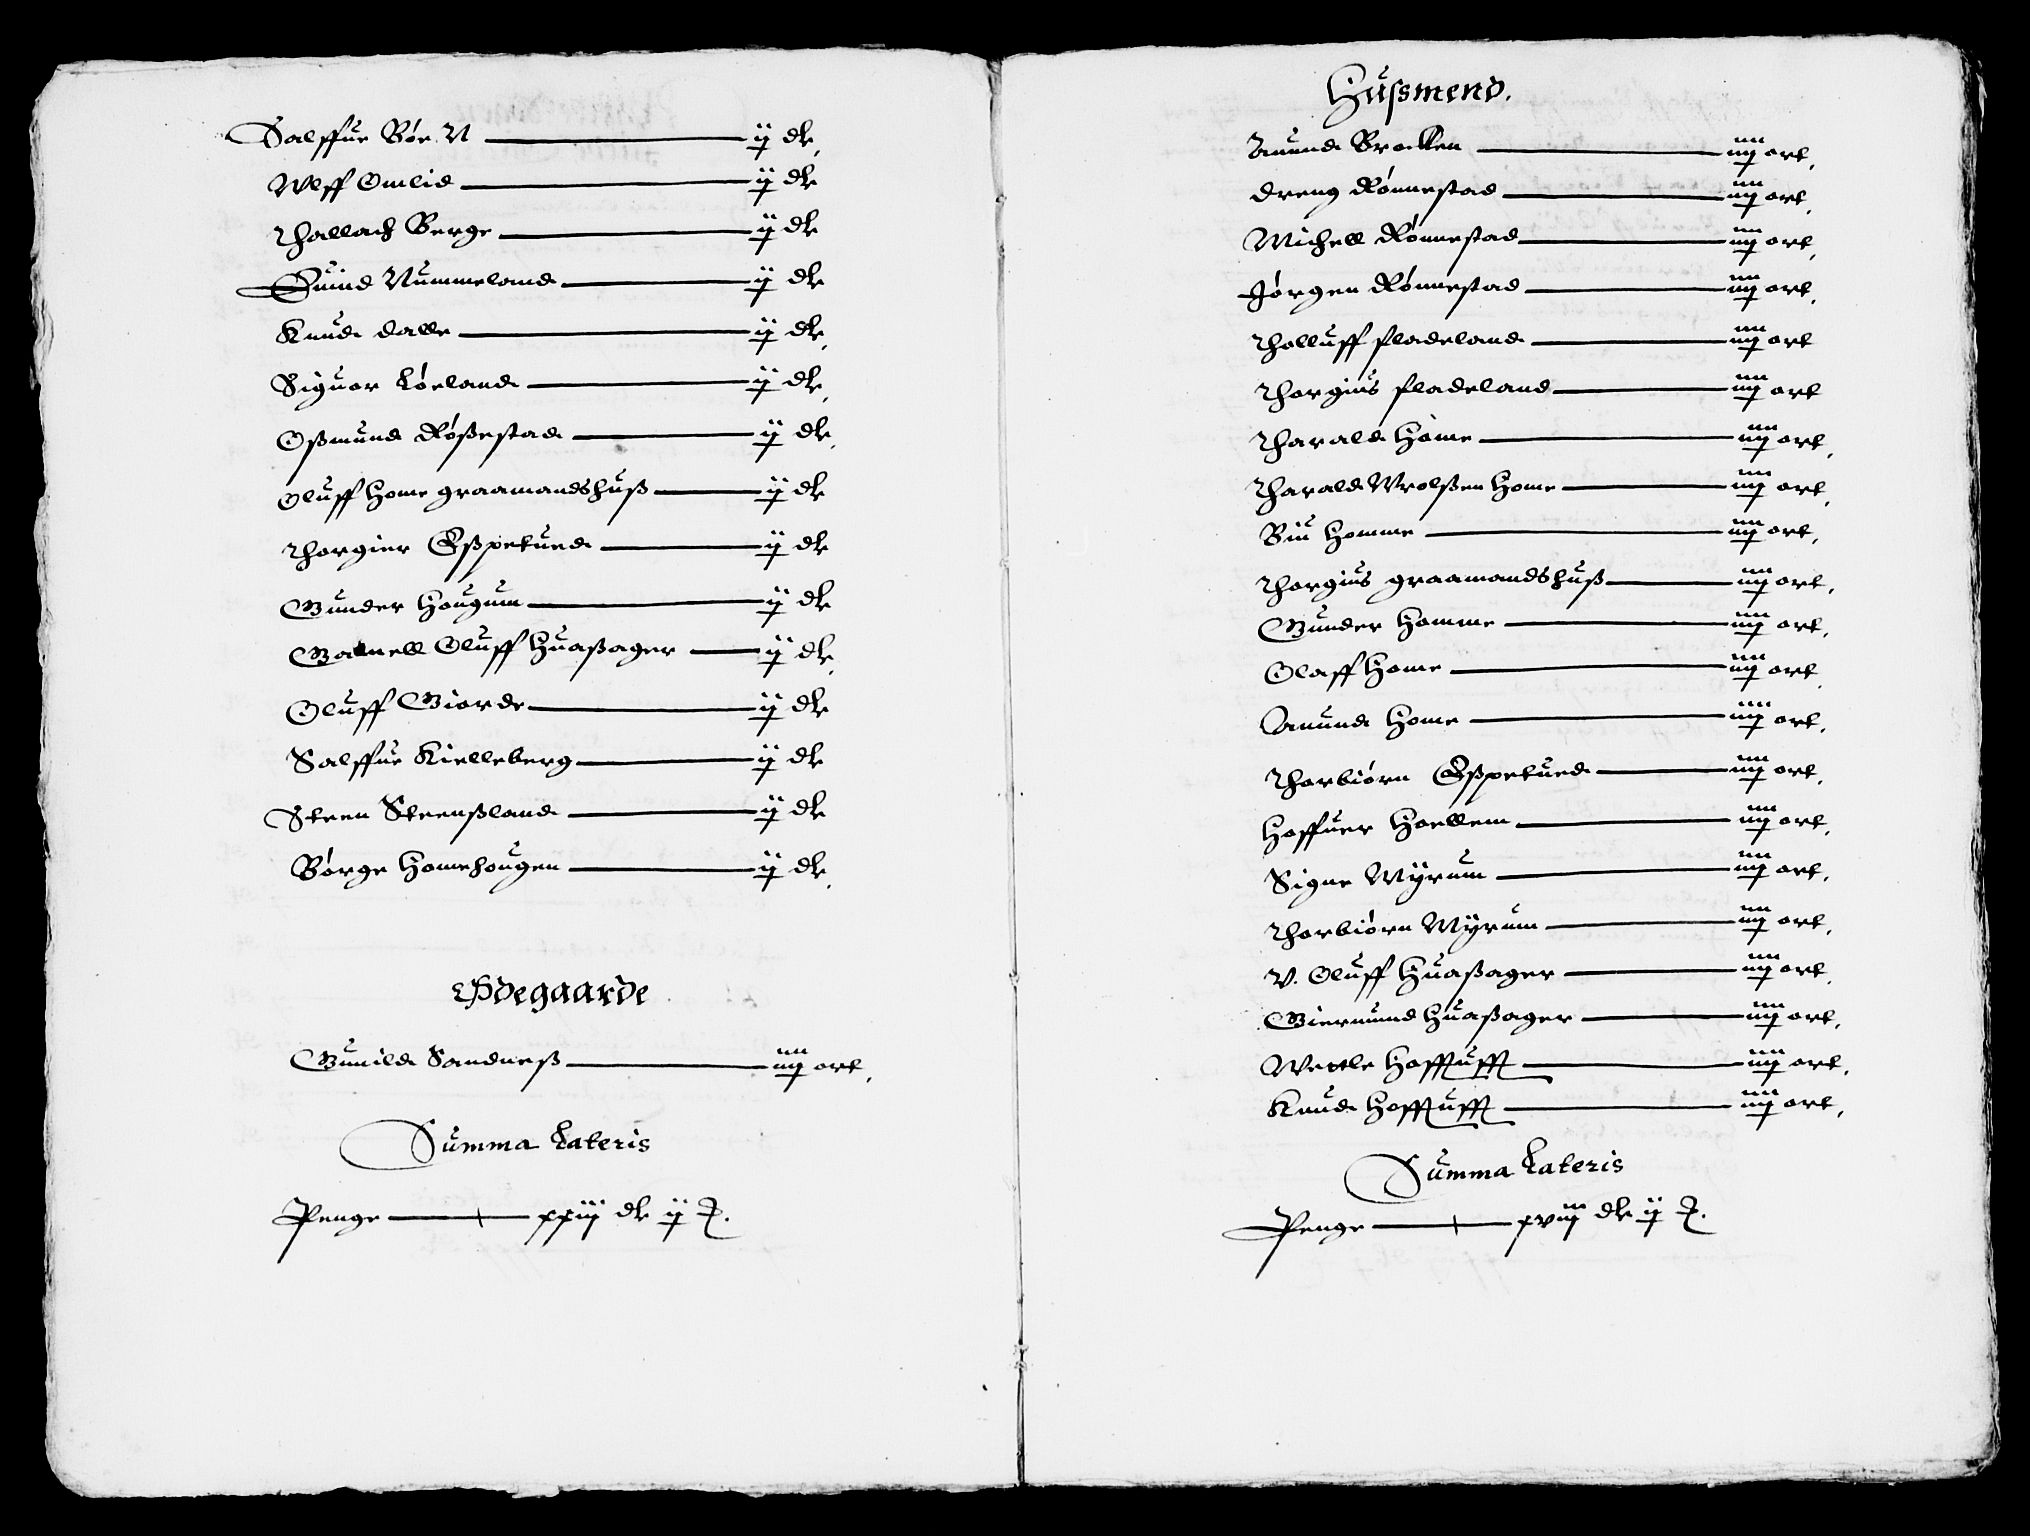 Salffue Bøe N ij dlr
Wlff Omlid ij dlr
Thallach Berge ij dlr
Suind Nummeland ij dlr
Knud dalle ij dlr
Siguor Løeland ij dlr
Oßmund Røßestad ij dlr
Oluff Home graamandshuß ij dlr
Thorgier Eßpetued ij dlr
Gunder Hougum ij dlr
Oluff Huaßager ij dlr
Oluff Giorde ij dlr
Salffue Kielleberg ij dlr
Steen Steenßland ij dlr
Børge Homehougen ij dlr
Ødegaarde
Gunild Sandneß iiij ort
Summa Lateris
Penge xxxj dlr
Hussmend.
Anund Brocken iiij ort
dreng Rønnestad iiij ort
Michell Rønnestad iiij ort
Jørgen Rønnestad iiij ort
Tholluff fladeland iiij ort
Thorgius fladeland iiij ort
Tharald Home iiij ort
Tharald Wrolßen Home iiij ort
Biu Homme iiij ort
Thorgius graamandshuß iiij ort
Gunder Homme iiij ort
Olaff Home iiij ort
Anund Home iiij ort
Thorbiørn Eßpetued iiij ort
Hoffuer Hoellem iiij ort
Signe Myrum iiij ort
Thorbiørn Myrum iiij ort
V. Oluff Huaßager iiij ort
Giermund Huaßager iiij ort
Wettle Hofftufft iiij ort
Knud Hofftufft iiij ort
Summa Lateris
Penge dlr ij